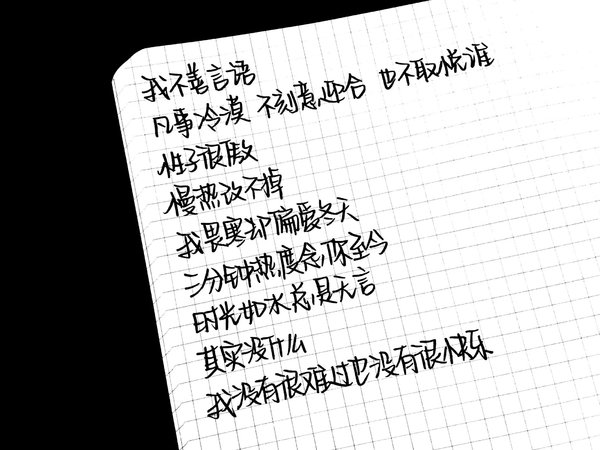 我不善言语
凡事冷漠 不刻意迎合 也不取悦谁
性子很傲
慢热改不掉
我畏寒却偏爱冬天
三分钟热度念你至今
时光如水总是无言
其实没什么
我没有很难过也没有很快乐